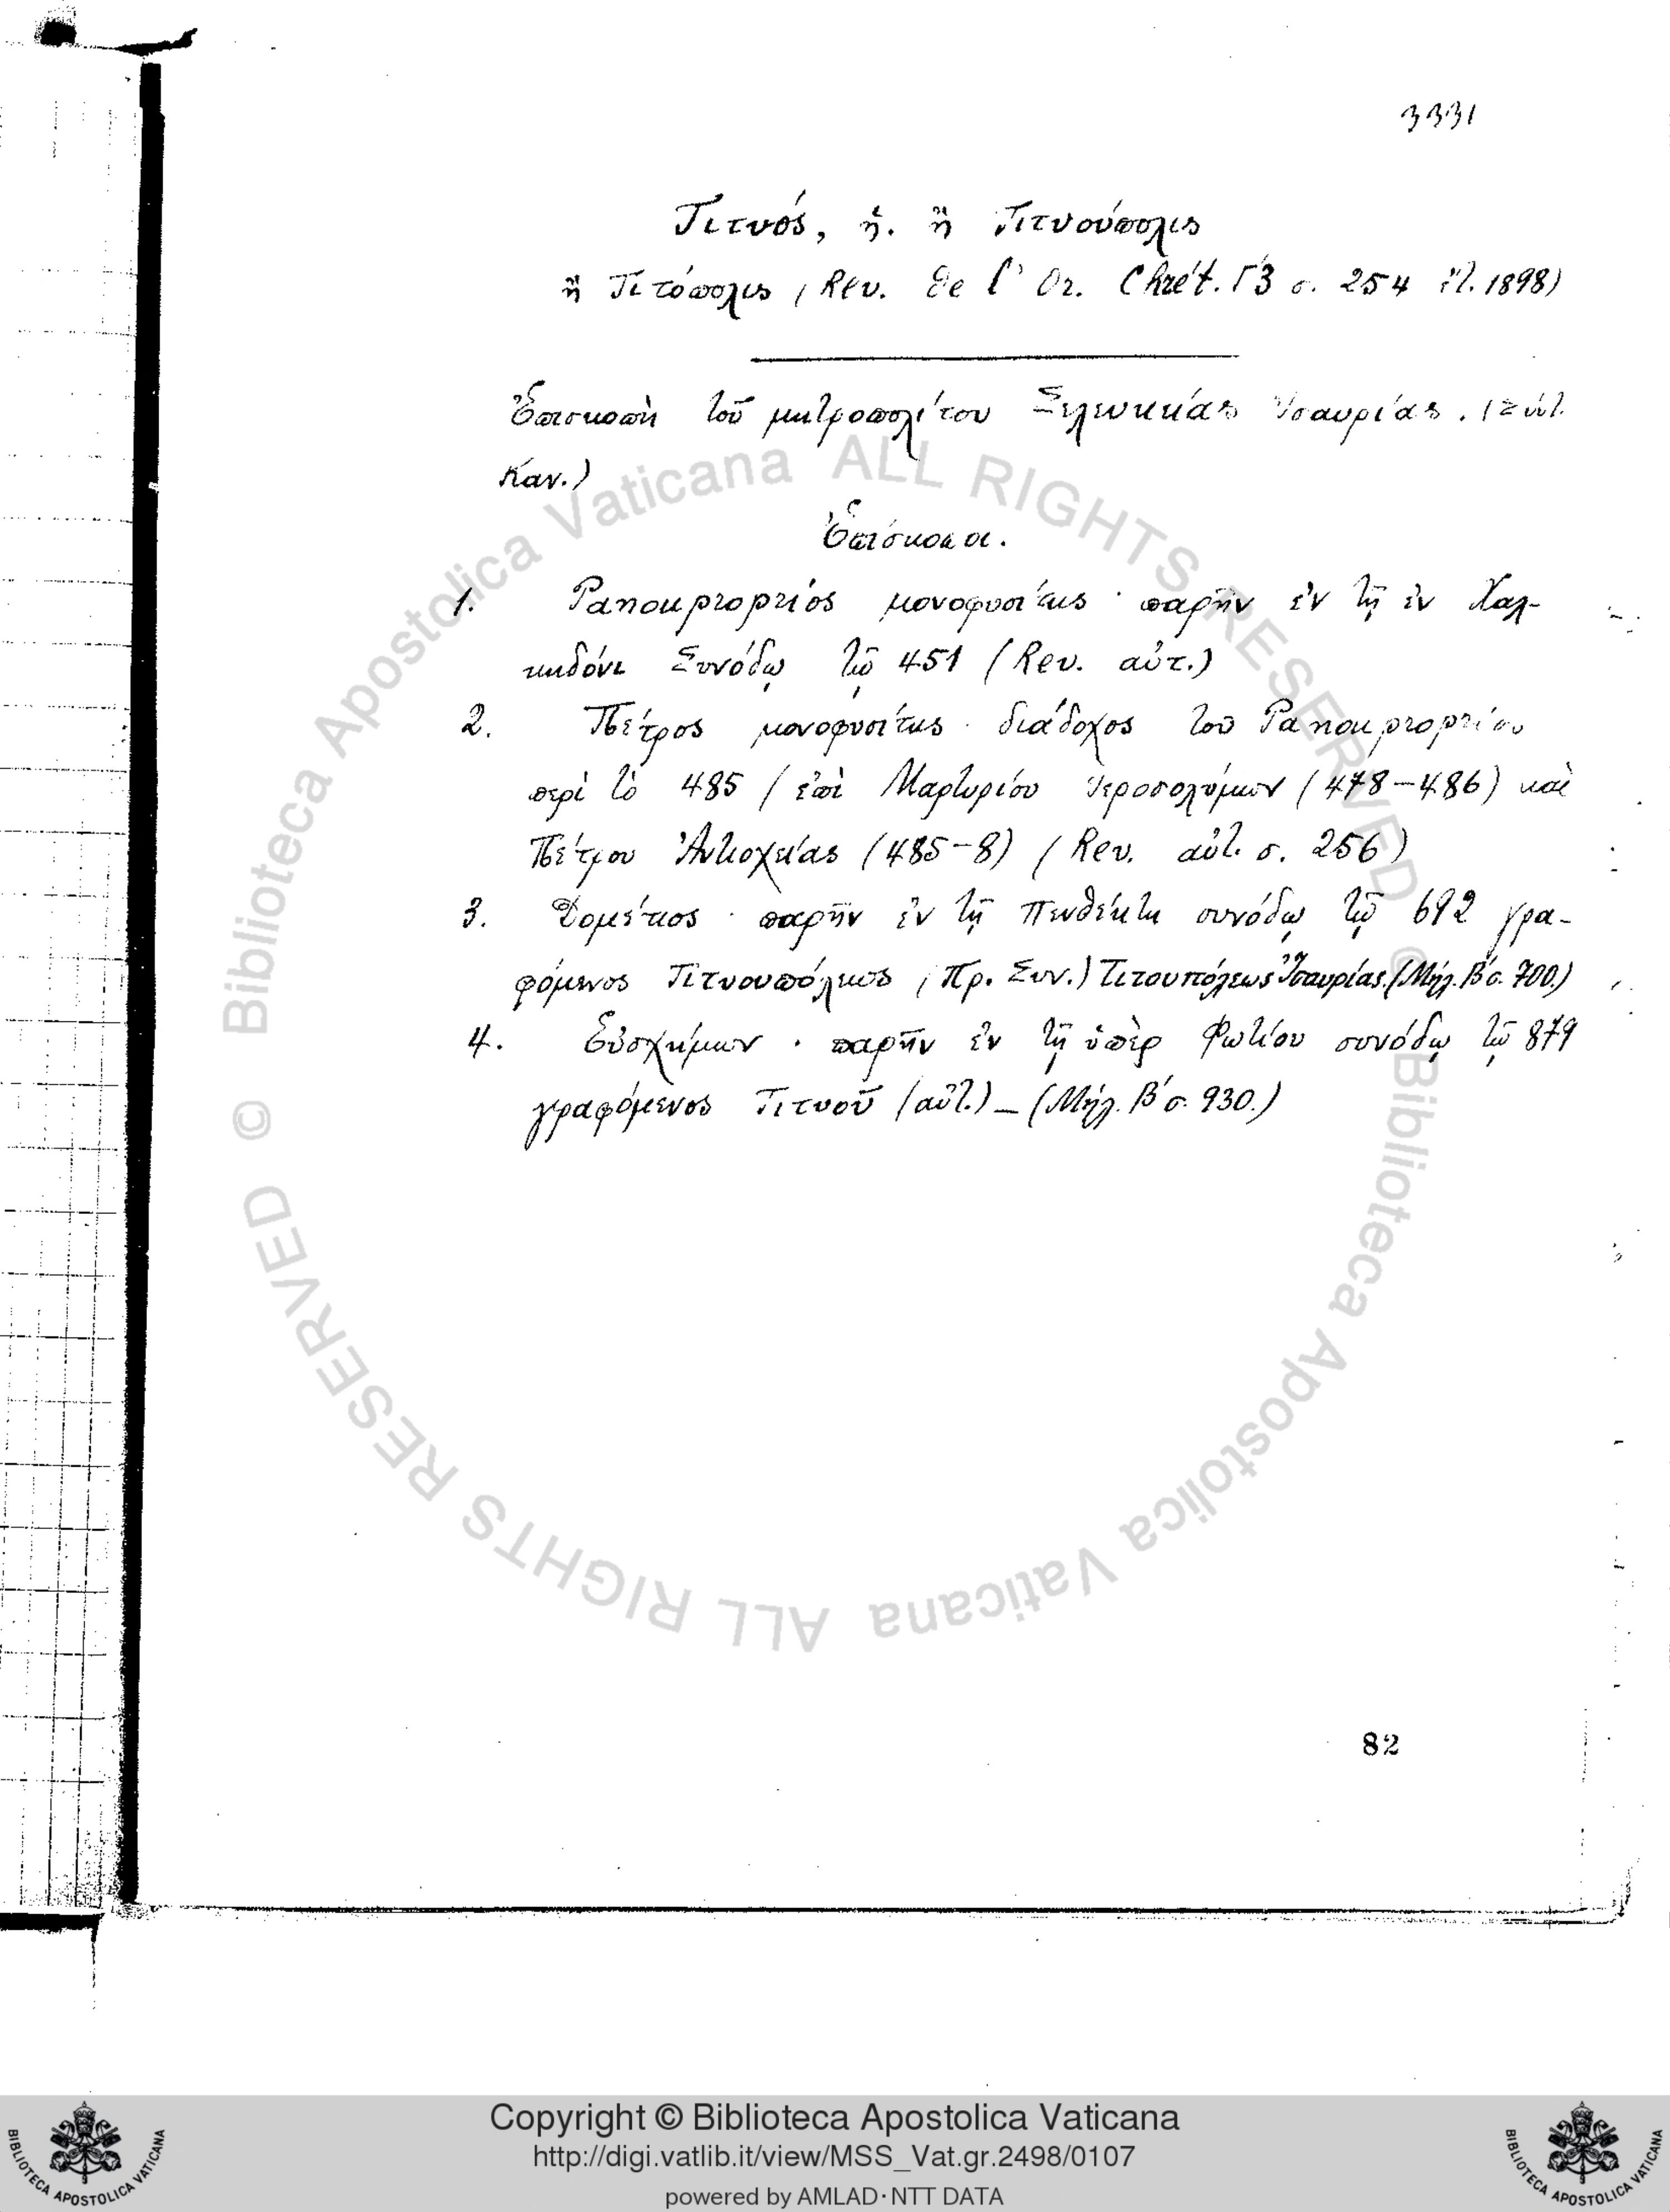 3331
Τιτυός, ἡ. ἢ Τιτυούπολις
ἢ Τιτόπολις (Rev. de l' Or. Chrét. Γ3 σ. 254 1898)
Ἐπισκοπὴ τοῦ μητροπολίτου Σελευκείας Ἰσαυρίας. (Σύντ.
Καν.)
Ἐπίσκοποι.
1. μονοφυσίτης · παρῆν ἐν τῇ ἐν Χαλ-
κηδόνι Συνόδῳ τῷ 451 (Rev. αὐτ.)
2. Πέτρος μονοφυσίτης · διάδοχος τοῦ
περὶ τὸ 485 / ἐπὶ Μαρτυρίου Ἱεροσολύμων (478-486) καὶ
Πέτρου Ἀντιοχείας (485-8) (Rev. αὐτ. σ. 256)
3. Δομέτιος · παρῆν ἐν τῇ Πενθέκτη συνόδῳ τῷ 692 γρα-
φόμενος Τιτυουπόλεως (Πρ. Συν.) Τιτουπόλεως Ἰσαυρίας. (Μήλ. Β΄ σ. 700.)
4. Εὐσχήμων · παρῆν ἐν τῇ ὑπὲρ Φωτίου συνόδῳ τῷ 879
γραφόμενος Τιτυοῦ (αὐτ.) – (Μήλ. Β΄ σ. 930.)
82
© Biblioteca Apostolica Vaticana ALL RIGHTS RESERVED © Biblioteca Apostolica Vaticana ALL RIGHTS RESERVED
Copyright © Biblioteca Apostolica Vaticana
http://digi.vatlib.it/view/MSS_Vat.gr.2498/0107
powered by AMLAD·NTT DATA
BIBLIOTECA APOSTOLICA VATICANA
BIBLIOTECA APOSTOLICA VATICANA